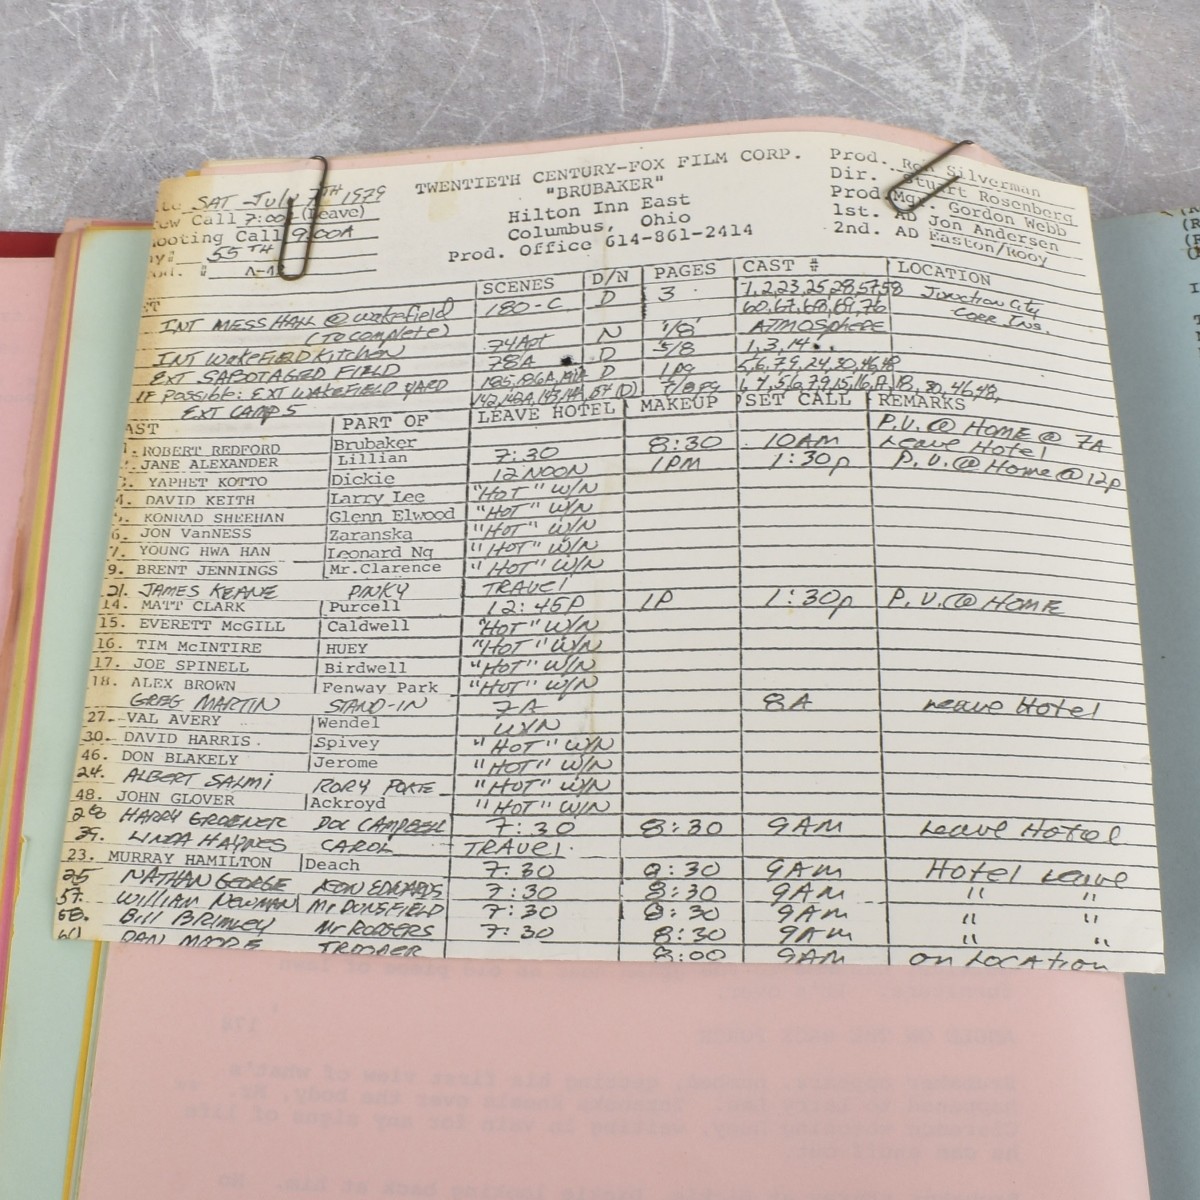 SAT - JULY 7TH 1979
Call 7:00 (Leave)
ooting Call 9:00A
55TH
TWENTIETH CENTURY-FOX FILM CORP.
"BRUBAKER"
Hilton Inn East
Columbus, Ohio
Prod. Office 614-861-2414
Prod. Ron Silverman
Dir. Stuart Rosenberg
Prod Mgr. Gordon Webb
1st. AD Jon Andersen
2nd. AD Easton/Rooy
SCENES D/N PAGES CAST # LOCATION
INT MESS HALL @ Wakefield 180-C D 3 1,2,23,25,28,57,58 Junction City
(To complete) 60,67,68,69,76 Corr Ins.
ATMOSPHERE
INT WAKEFIELD KITCHEN 74Apt N 1/8 1,3,14
EXT SABOTAGED FIELD 78A D 5/8
IF Possible: EXT WAKEFIELD YARD D 1pg
EXT CAMP 5 7/8pg
AST PART OF LEAVE HOTEL MAKEUP SET CALL REMARKS
1. ROBERT REDFORD Brubaker P.U. @ HOME @ 7A
JANE ALEXANDER Lillian 7:30 8:30 10AM Leave Hotel
3. YAPHET KOTTO Dickie 12 NOON 1PM 1:30p P.U. @ Home @ 12p
4. DAVID KEITH Larry Lee "HOT" W/N
5. KONRAD SHEEHAN Glenn Elwood "HOT" W/N
6. JON VanNESS Zaranska "HOT" W/N
7. YOUNG HWA HAN Leonard Ng "HOT" W/N
9. BRENT JENNINGS Mr.Clarence "HOT" W/N
21. JAMES KEANE PINKY TRAVEL
14. MATT CLARK Purcell 12:45P 1P 1:30p P.U. @ HOME
15. EVERETT McGILL Caldwell "HOT" W/N
16. TIM McINTIRE HUEY "HOT" W/N
17. JOE SPINELL Birdwell "HOT" W/N
18. ALEX BROWN Fenway Park "HOT" W/N
GREG MARTIN STAND-IN 7A 8A Leave Hotel
27. VAL AVERY Wendel W/N
30. DAVID HARRIS Spivey "HOT" W/N
46. DON BLAKELY Jerome "HOT" W/N
24. ALBERT SALMI RORY POKE "HOT" W/N
48. JOHN GLOVER Ackroyd "HOT" W/N
28 HARRY GROENER DOC CAMPBELL 7:30 8:30 9AM Leave Hotel
39. LINDA HAYNES CAROL TRAVEL.
23. MURRAY HAMILTON Deach 7:30 8:30 9AM Hotel Leave
25 NATHAN GEORGE LEON EDWARDS 7:30 8:30 9AM " "
57. WILLIAM NEWMAN Mr DONSFIELD 7:30 8:30 9AM " "
58. Bill BRIMLEY Mr ROGERS 7:30 8:30 9AM " "
DAN MOORE TROOPER 8:00 9AM ON LOCATION